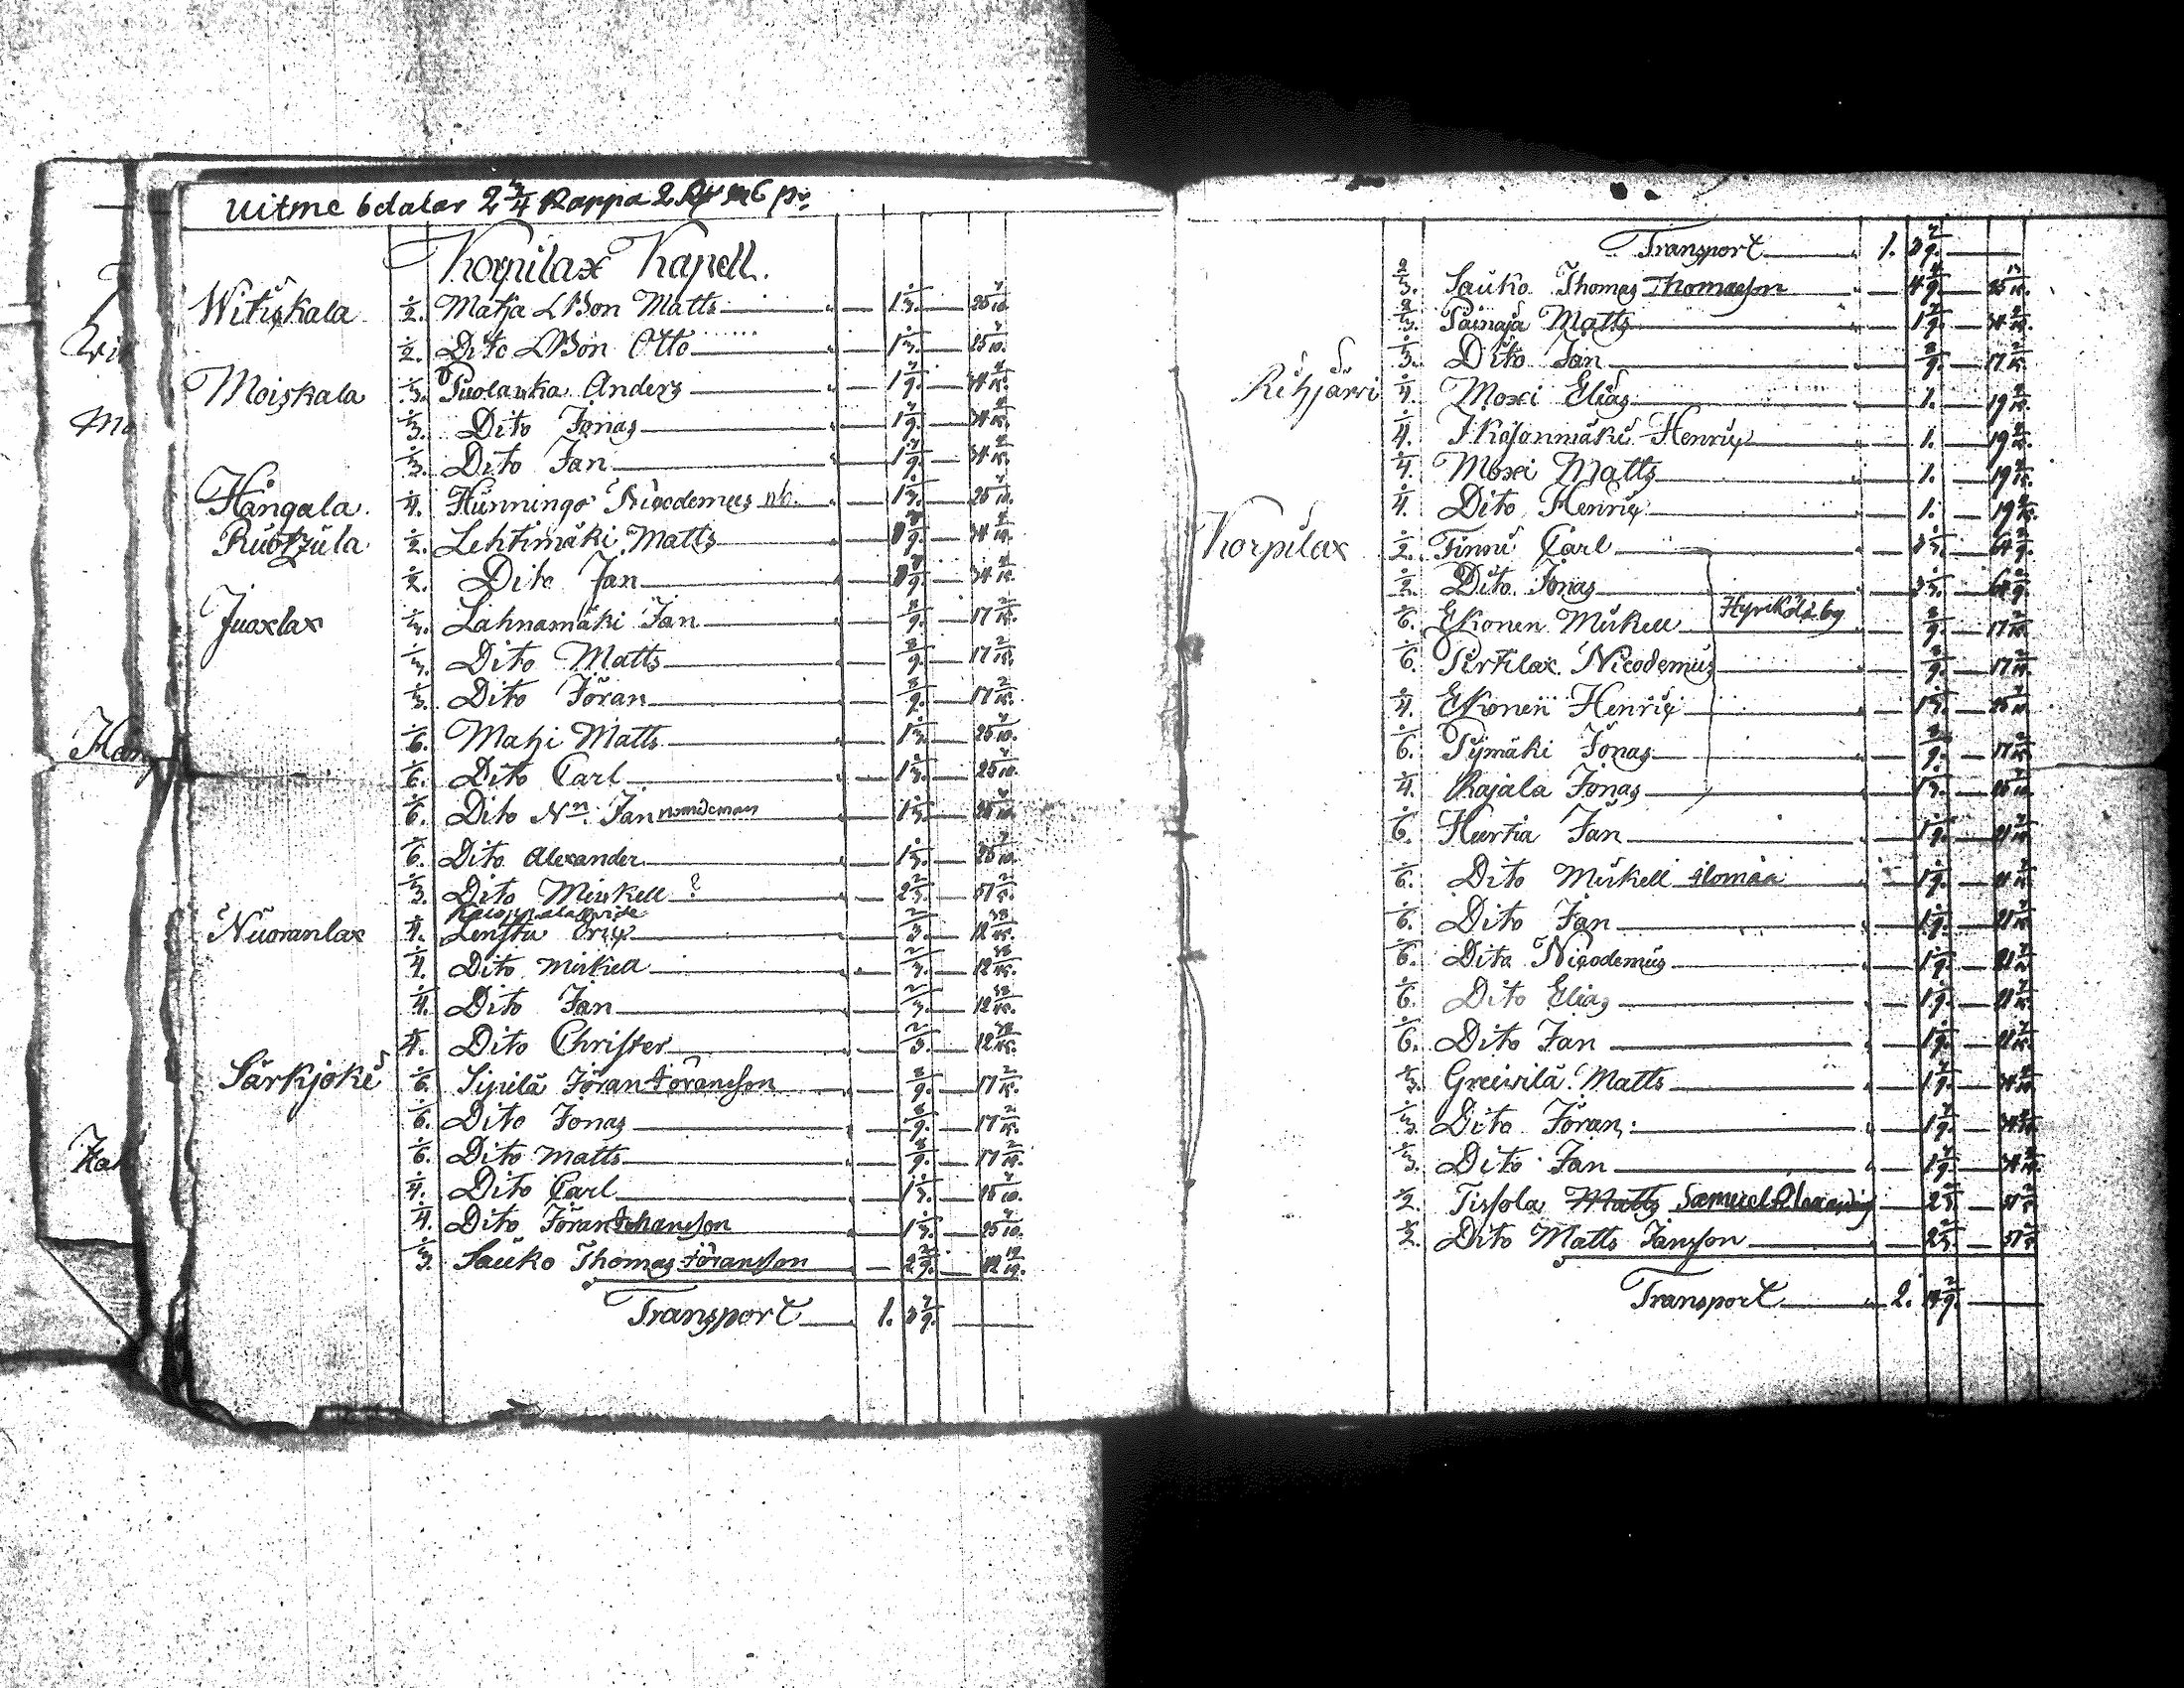 uitme 6 dalar 2 3/4 Kappa 2
Korpilax Kapell.
Witiskala 1/2. Matja LBon Matts 1 1/3. 25 7/10.
1/2. Dito LBon Otto 1 1/3. 25 7/10.
Moiskala 1/3. Puolanka Anders 1 7/9. 34 4/15.
1/3. Dito Jonas 1 7/9. 34 4/15.
1/3. Dito Jan 1 7/9. 34 4/15.
Hångala. 1/4. Hünningo Nicodemus nb. 1 1/3. 25 7/10.
Ruotzula 1/2. Lehtimäki Matts 34 4/15.
1/2. Dito Jan 34 4/15.
Juoxlax 1/3. Lahnamäki Jan 8/9. 17 2/15.
1/3. Dito Matts 8/9. 17 2/15.
1/3. Dito Jöran 8/9. 17 2/15.
1/6. Mahi Matts 1 1/3. 25 7/10.
1/6. Dito Carl 1 1/3. 25 7/10.
1/6. Dito Nn. Jan nomideman 1 1/3. 25 7/10.
1/6. Dito Alexander 1 1/3. 25 7/10.
1/3. Dito Mickell ? 2 2/3. 51 2/5.
Nuoranlax 1/4. Lenstu Erix 2/3. 12 38/45.
1/4. Dito Mickell 2/3. 12 38/45.
1/4. Dito Jan 2/3. 12 38/45.
1/4. Dito Christer 2/3. 12 38/45.
Särkjoki 1/6. Sipilä Jöran Jöransson 8/9. 17 2/15.
1/6. Dito Jonas 8/9. 17 2/15.
1/6. Dito Matts 8/9. 17 2/15.
1/4. Dito Carl 1 1/3. 25 7/10.
1/4. Dito Jöran Johansson 1 1/3. 25 7/10.
1/3. Sauko Thomas Jöransson 2 2/9.
Transport 1. 3 7/9.
Transport 1. 3 7/9.
2/3. Sauko Thomas Thomasson 4 4/9. 85
2/3. Painaja Matts 1 7/9. 34 4/15.
1/3. Dito Jan 8/9. 17 2/15.
Rihjärvi 1/4. Moxi Elias 1. 19
1/4. Ikäjänmäki Henrix 1. 19
1/4. Moxi Matts 1. 19
1/4. Dito Henrix 1. 19
Korpilax 1/2. Finni Carl 3 1/3. 64 2/9.
1/2. Dito Jonas 3 1/3. 64 2/9.
1/6. Ekonen Mickell Hyrikölä by 8/9. 17 2/15.
1/6. Pirtilax Nicodemus 8/9. 17 2/15.
1/4. Ekonen Henrix 1 1/3. 25 7/10.
1/6. Pijmäki Jonas 8/9. 17 2/15.
1/4. Rajala Jonas 1 1/3. 25 7/10.
1/6. Hurtia Jan 1 1/9. 21
1/6. Dito Mickell ilomäa 1 1/9. 21
1/6. Dito Jan 1 1/9. 21
1/6. Dito Nicodemus 1 1/9. 21
1/6. Dito Elias 1 1/9. 21
1/6. Dito Jan 1 1/9. 21
1/3. Greivilä. Matts 1 7/9. 34 4/15.
1/3. Dito Jöran. 1 7/9. 34 4/15.
1/3. Dito Jan 1 7/9. 34 4/15.
1/2. Tissola Matts Samuel 2 2/3. 51 2/5.
1/2. Dito Matts Jansson 2 2/3. 51 2/5.
Transport 2.